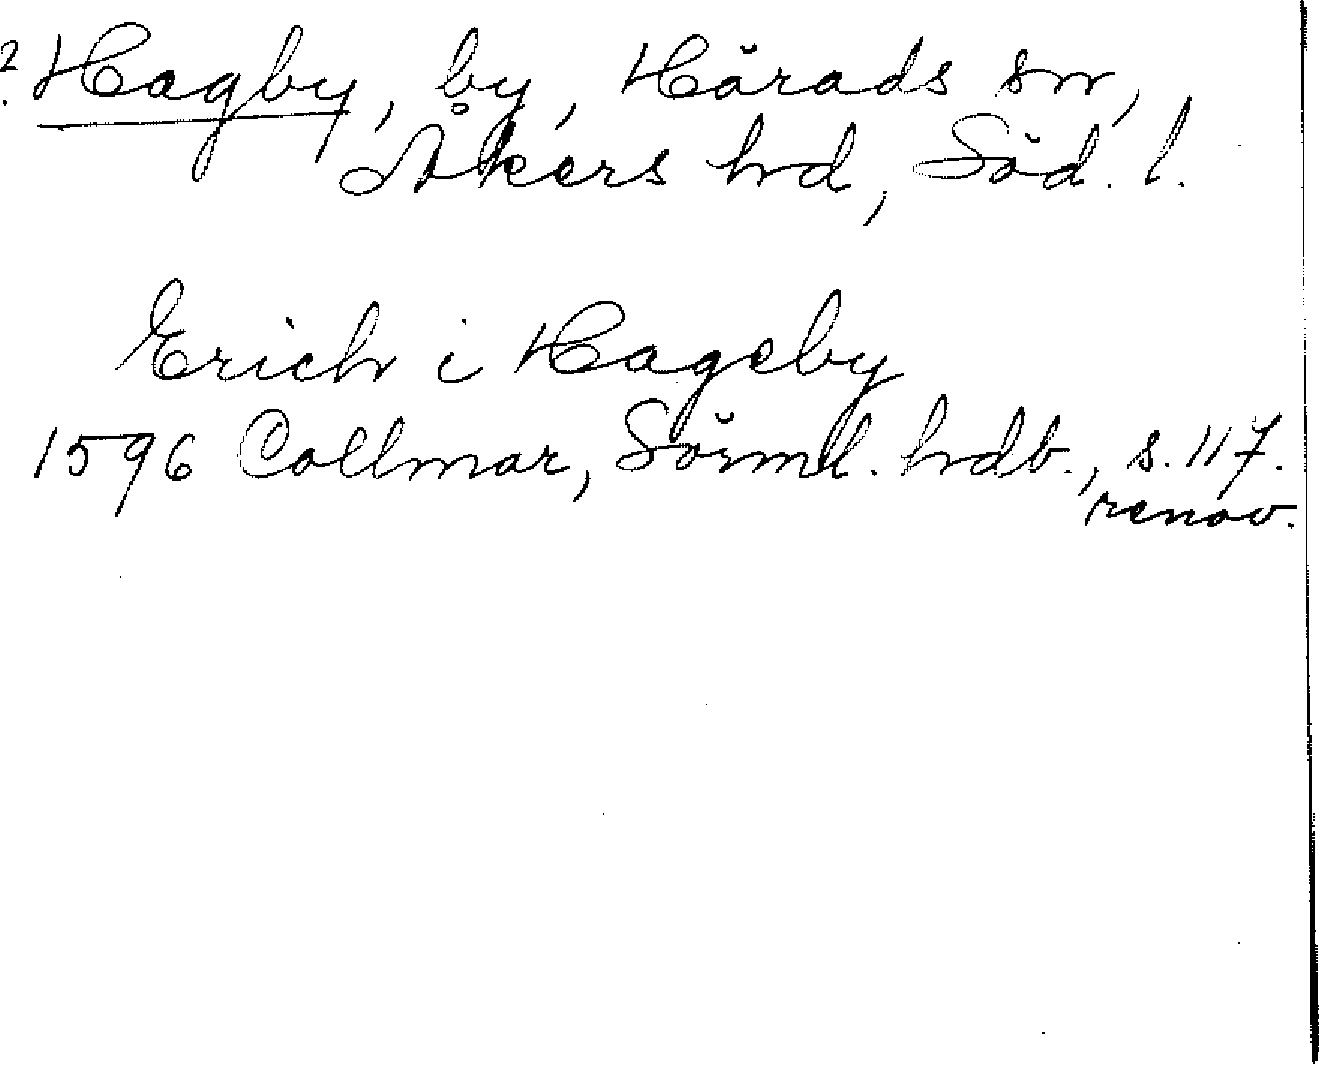 2. Hagby, by, Härads sn,
Åkers hd, Söd. l.
Erich i Hageby
1596 Collmar, Sörml. hdb., s. 117.
renov.